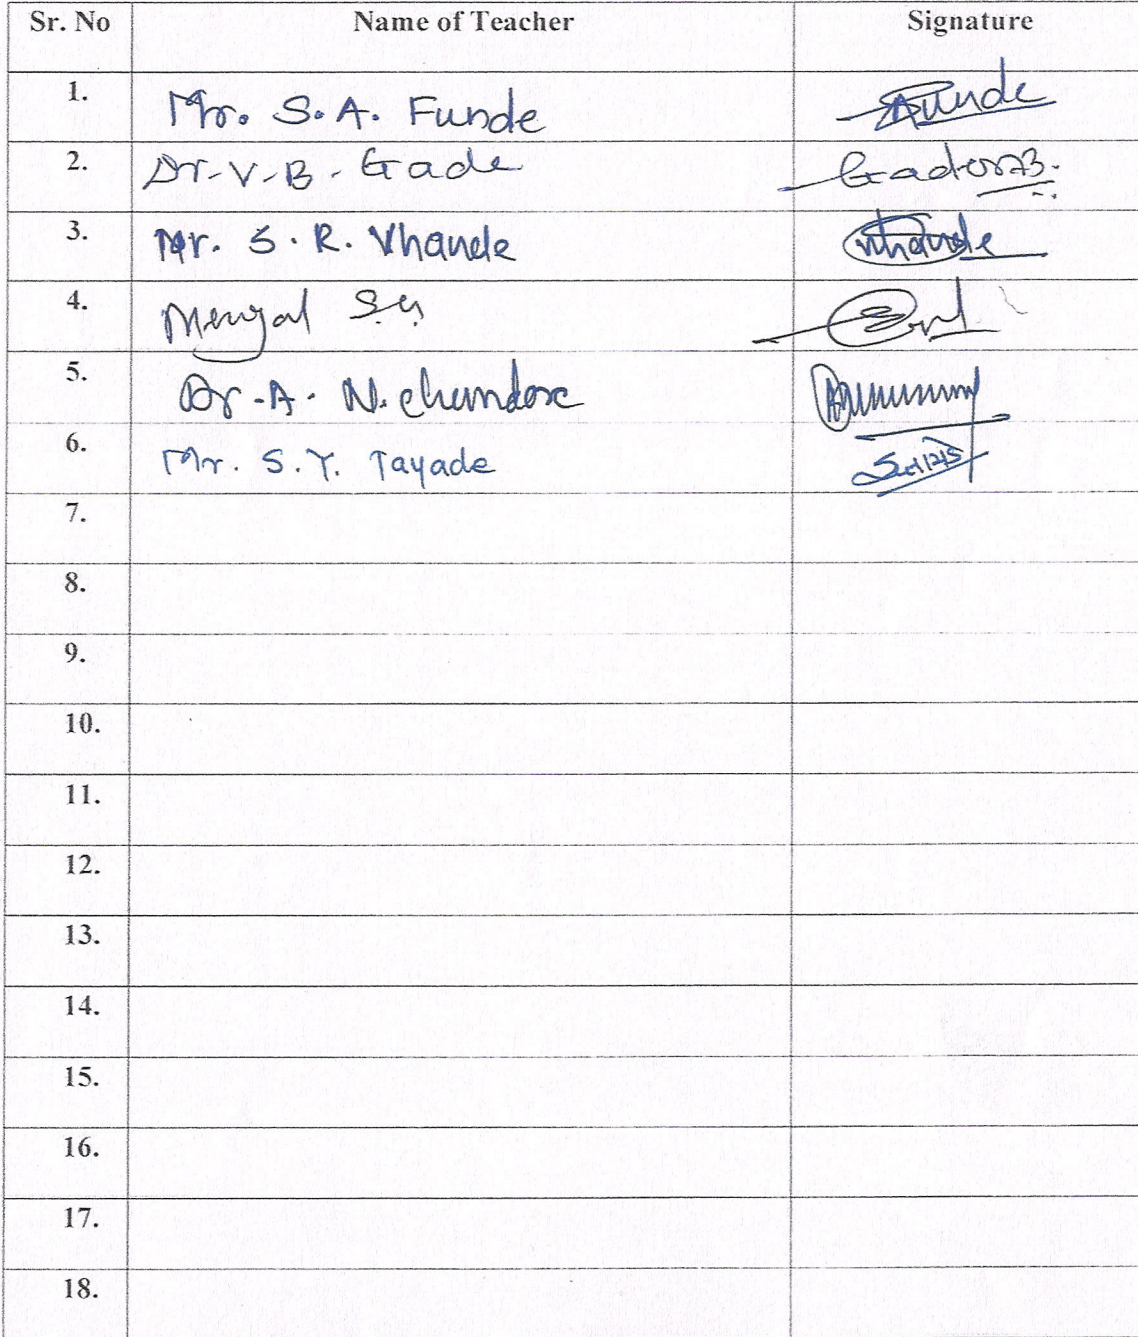 Sr. No Name of Teacher Signature
1. Mr. S.A. Funde Funde
2. Dr. V. B. Gade
3. Mr. S. R. Vhande Vhande
4. Mengal
5. Dr. A. N.
6. Mr. S. Y. Tayade
7.
8.
9.
10.
11.
12.
13.
14.
15.
16.
17.
18.